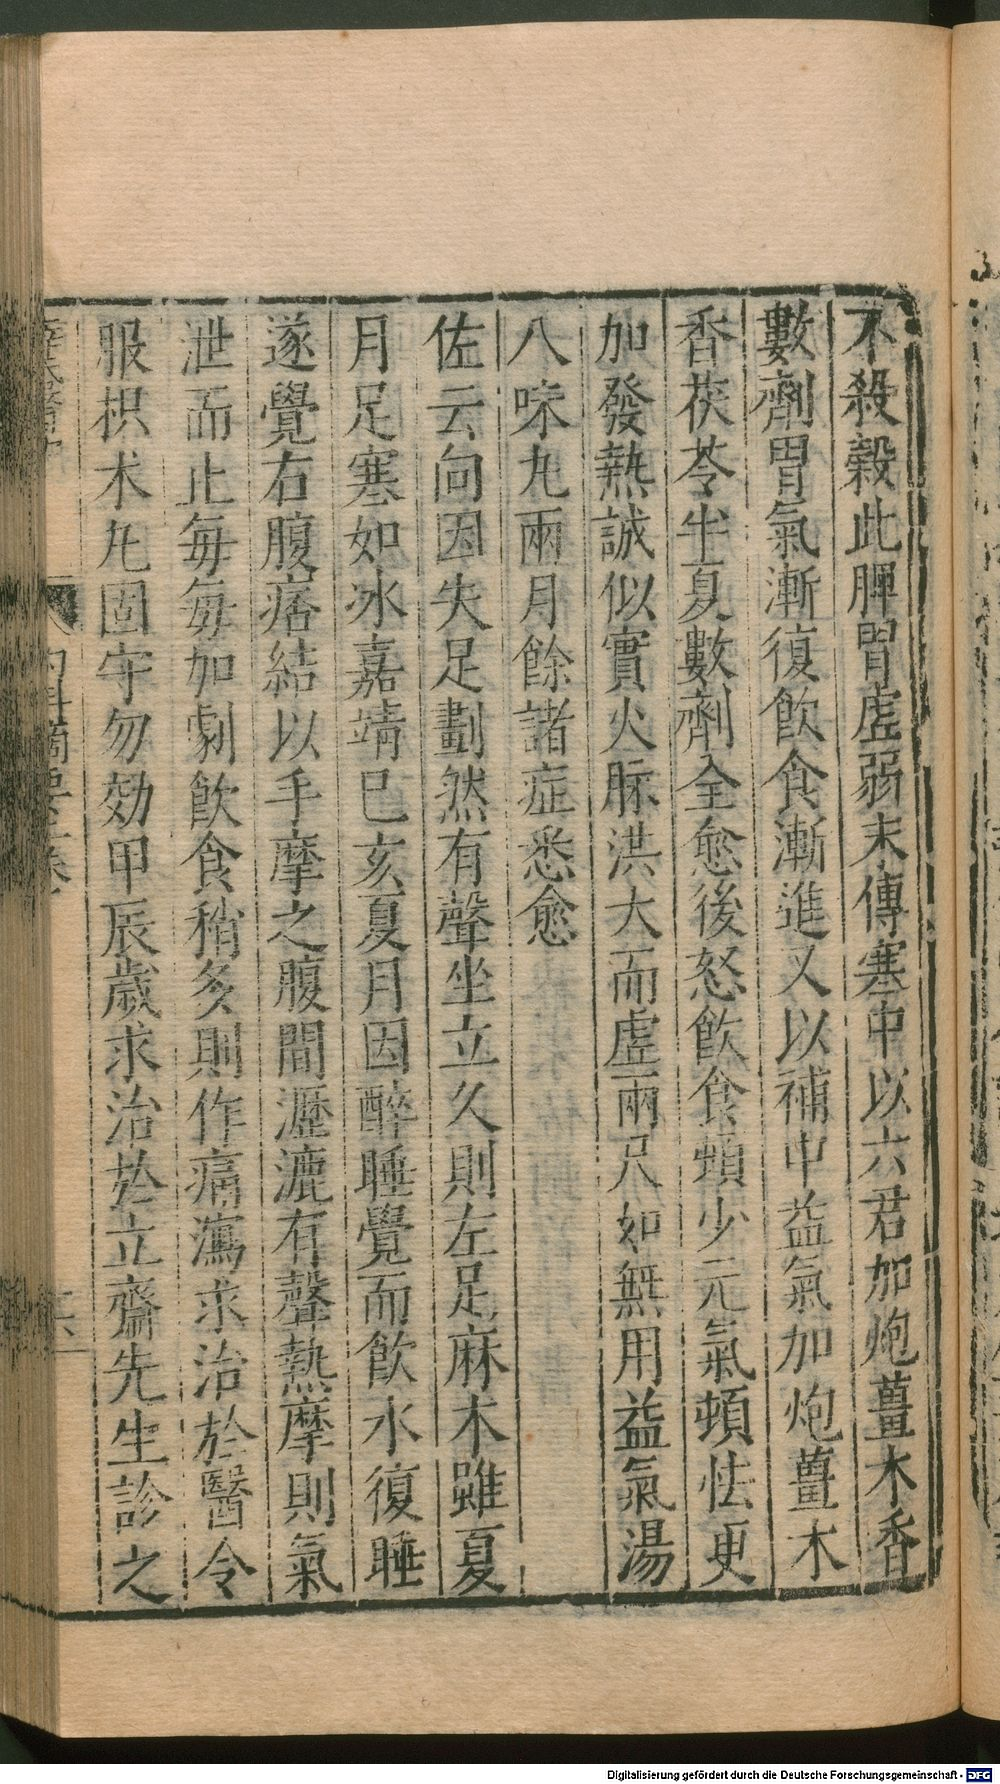 不殺穀此脾胃虛弱末傳寒中以六君加炮薑木香
數劑胃氣漸復飲食漸進又以補中益氣加炮薑木
香茯苓半夏數劑全愈後怒飲食頓少元氣頓怯更
加發熱誠似實火脉洪大而虛兩尺如無用益氣湯
八味丸兩月餘諸症悉愈
佐云向因失足劃然有聲坐立久則左足麻木雖夏
月足寒如冰嘉靖己亥夏月因醉睡覺而飲水復睡
遂覺右腹痞結以手摩之腹間瀝漉有聲熱摩則氣
泄而止每每加劇飲食稍多則作痛瀉求治於醫令
服枳术丸固守勿効甲辰歲求治於立齋先生診之
Digitalisierung gefördert durch die Deutsche Forschungsgemeinschaft - DFG